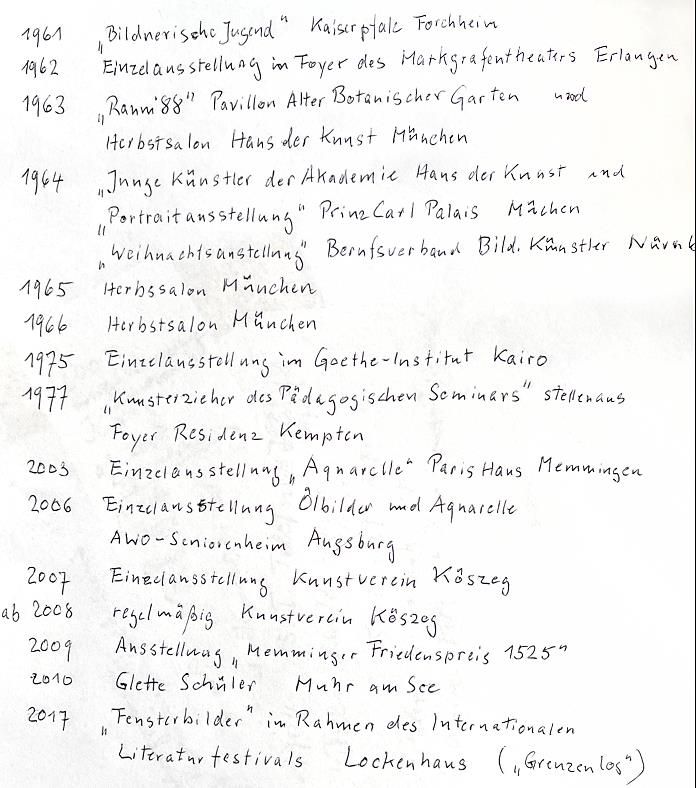 1961 „Bildnerische Jugend" Kaiserpfalz Forchheim
1962 Einzelausstellung im Foyer des Markgrafentheaters Erlangen
1963 „Raum '88" Pavillon Alter Botanischer Garten und
Herbstsalon Haus der Kunst München
1964 „Junge Künstler der Akademie Haus der Kunst und
„Portraitausstellung" Prinz Carl Palais Müchen
„Weihnachtsaustellung" Berufsverband Bild. Künstler Nürnb
1965 Herbssalon München
1966 Herbstsalon München
1975 Einzelausstellung im Goethe-Institut Kairo
1977 „Kunsterzieher des Pädagogischen Seminars" stellen aus
Foyer Residenz Kempten
2003 Einzelausstellung „Aquarelle" Paris Haus Memmingen
2006 Einzelausstellung Ölbilder und Aquarelle
AWO-Seniorenheim Augsburg
2007 Einzelausstellung Kunstverein Kőszeg
ab 2008 regelmäßig Kunstverein Kőszeg
2009 Ausstellung „Memminger Friedenspreis 1525"
2010 Glette Schüler Muhr am See
2017 „Fensterbilder" im Rahmen des Internationalen
Literaturfestivals Lockenhaus („Grenzenlos")